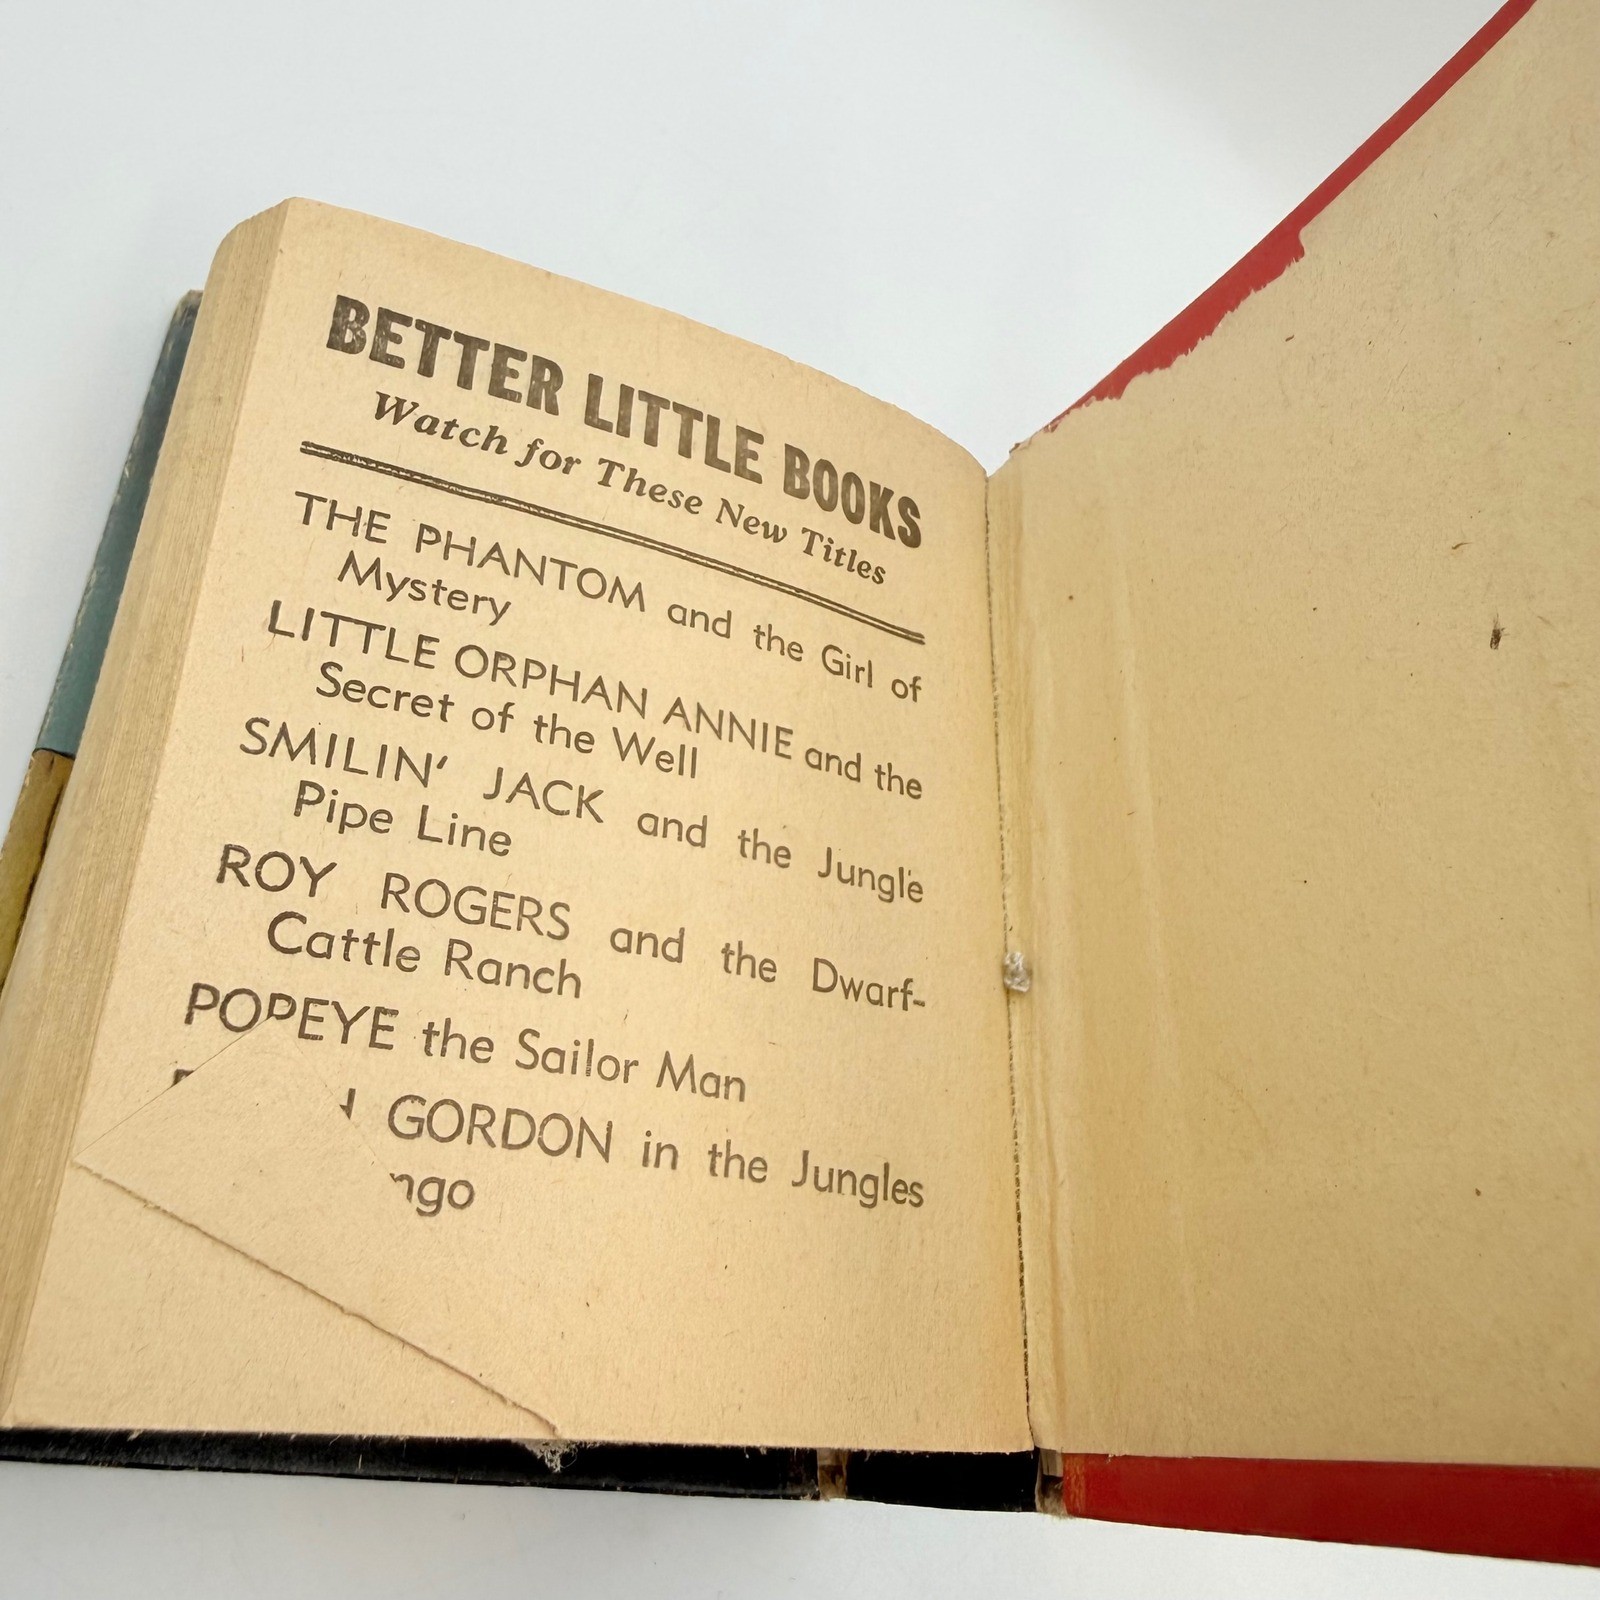 BETTER LITTLE BOOKS
Watch for These New Titles
THE PHANTOM and the Girl of
Mystery
LITTLE ORPHAN ANNIE and the
Secret of the Well
SMILIN' JACK and the Jungle
Pipe Line
ROY ROGERS and the Dwarf-
Cattle Ranch
POPEYE the Sailor Man
GORDON in the Jungles